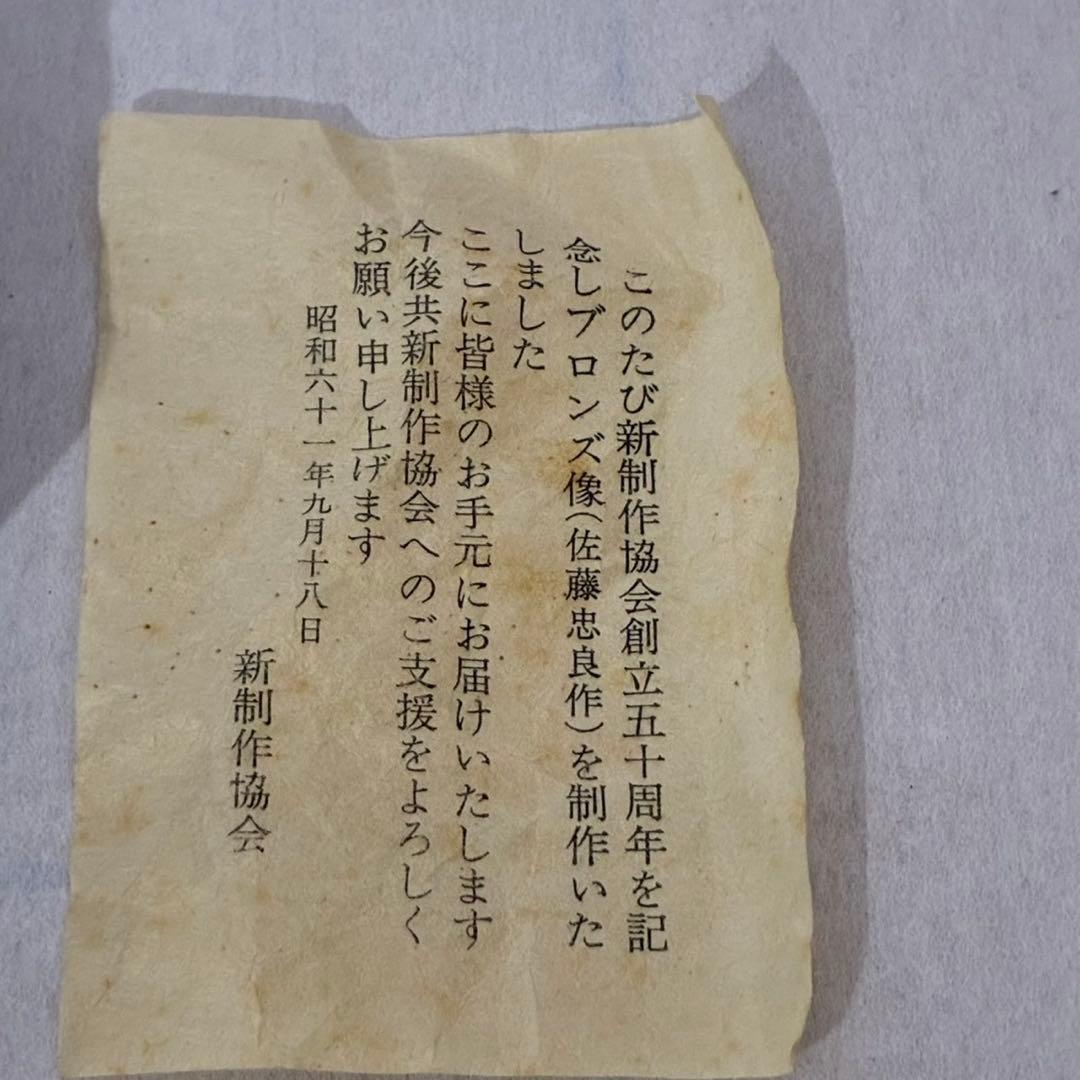 このたび新制作協会創立五十周年を記
念しブロンズ像(佐藤忠良作)を制作いた
しました
ここに皆様のお手元にお届けいたします
今後共新制作協会へのご支援をよろしく
お願い申し上げます
昭和六十一年九月十八日
新制作協会